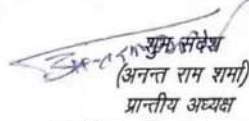 शुभ संदेश
(अनन्त राम शर्मा)
प्रान्तीय अध्यक्ष